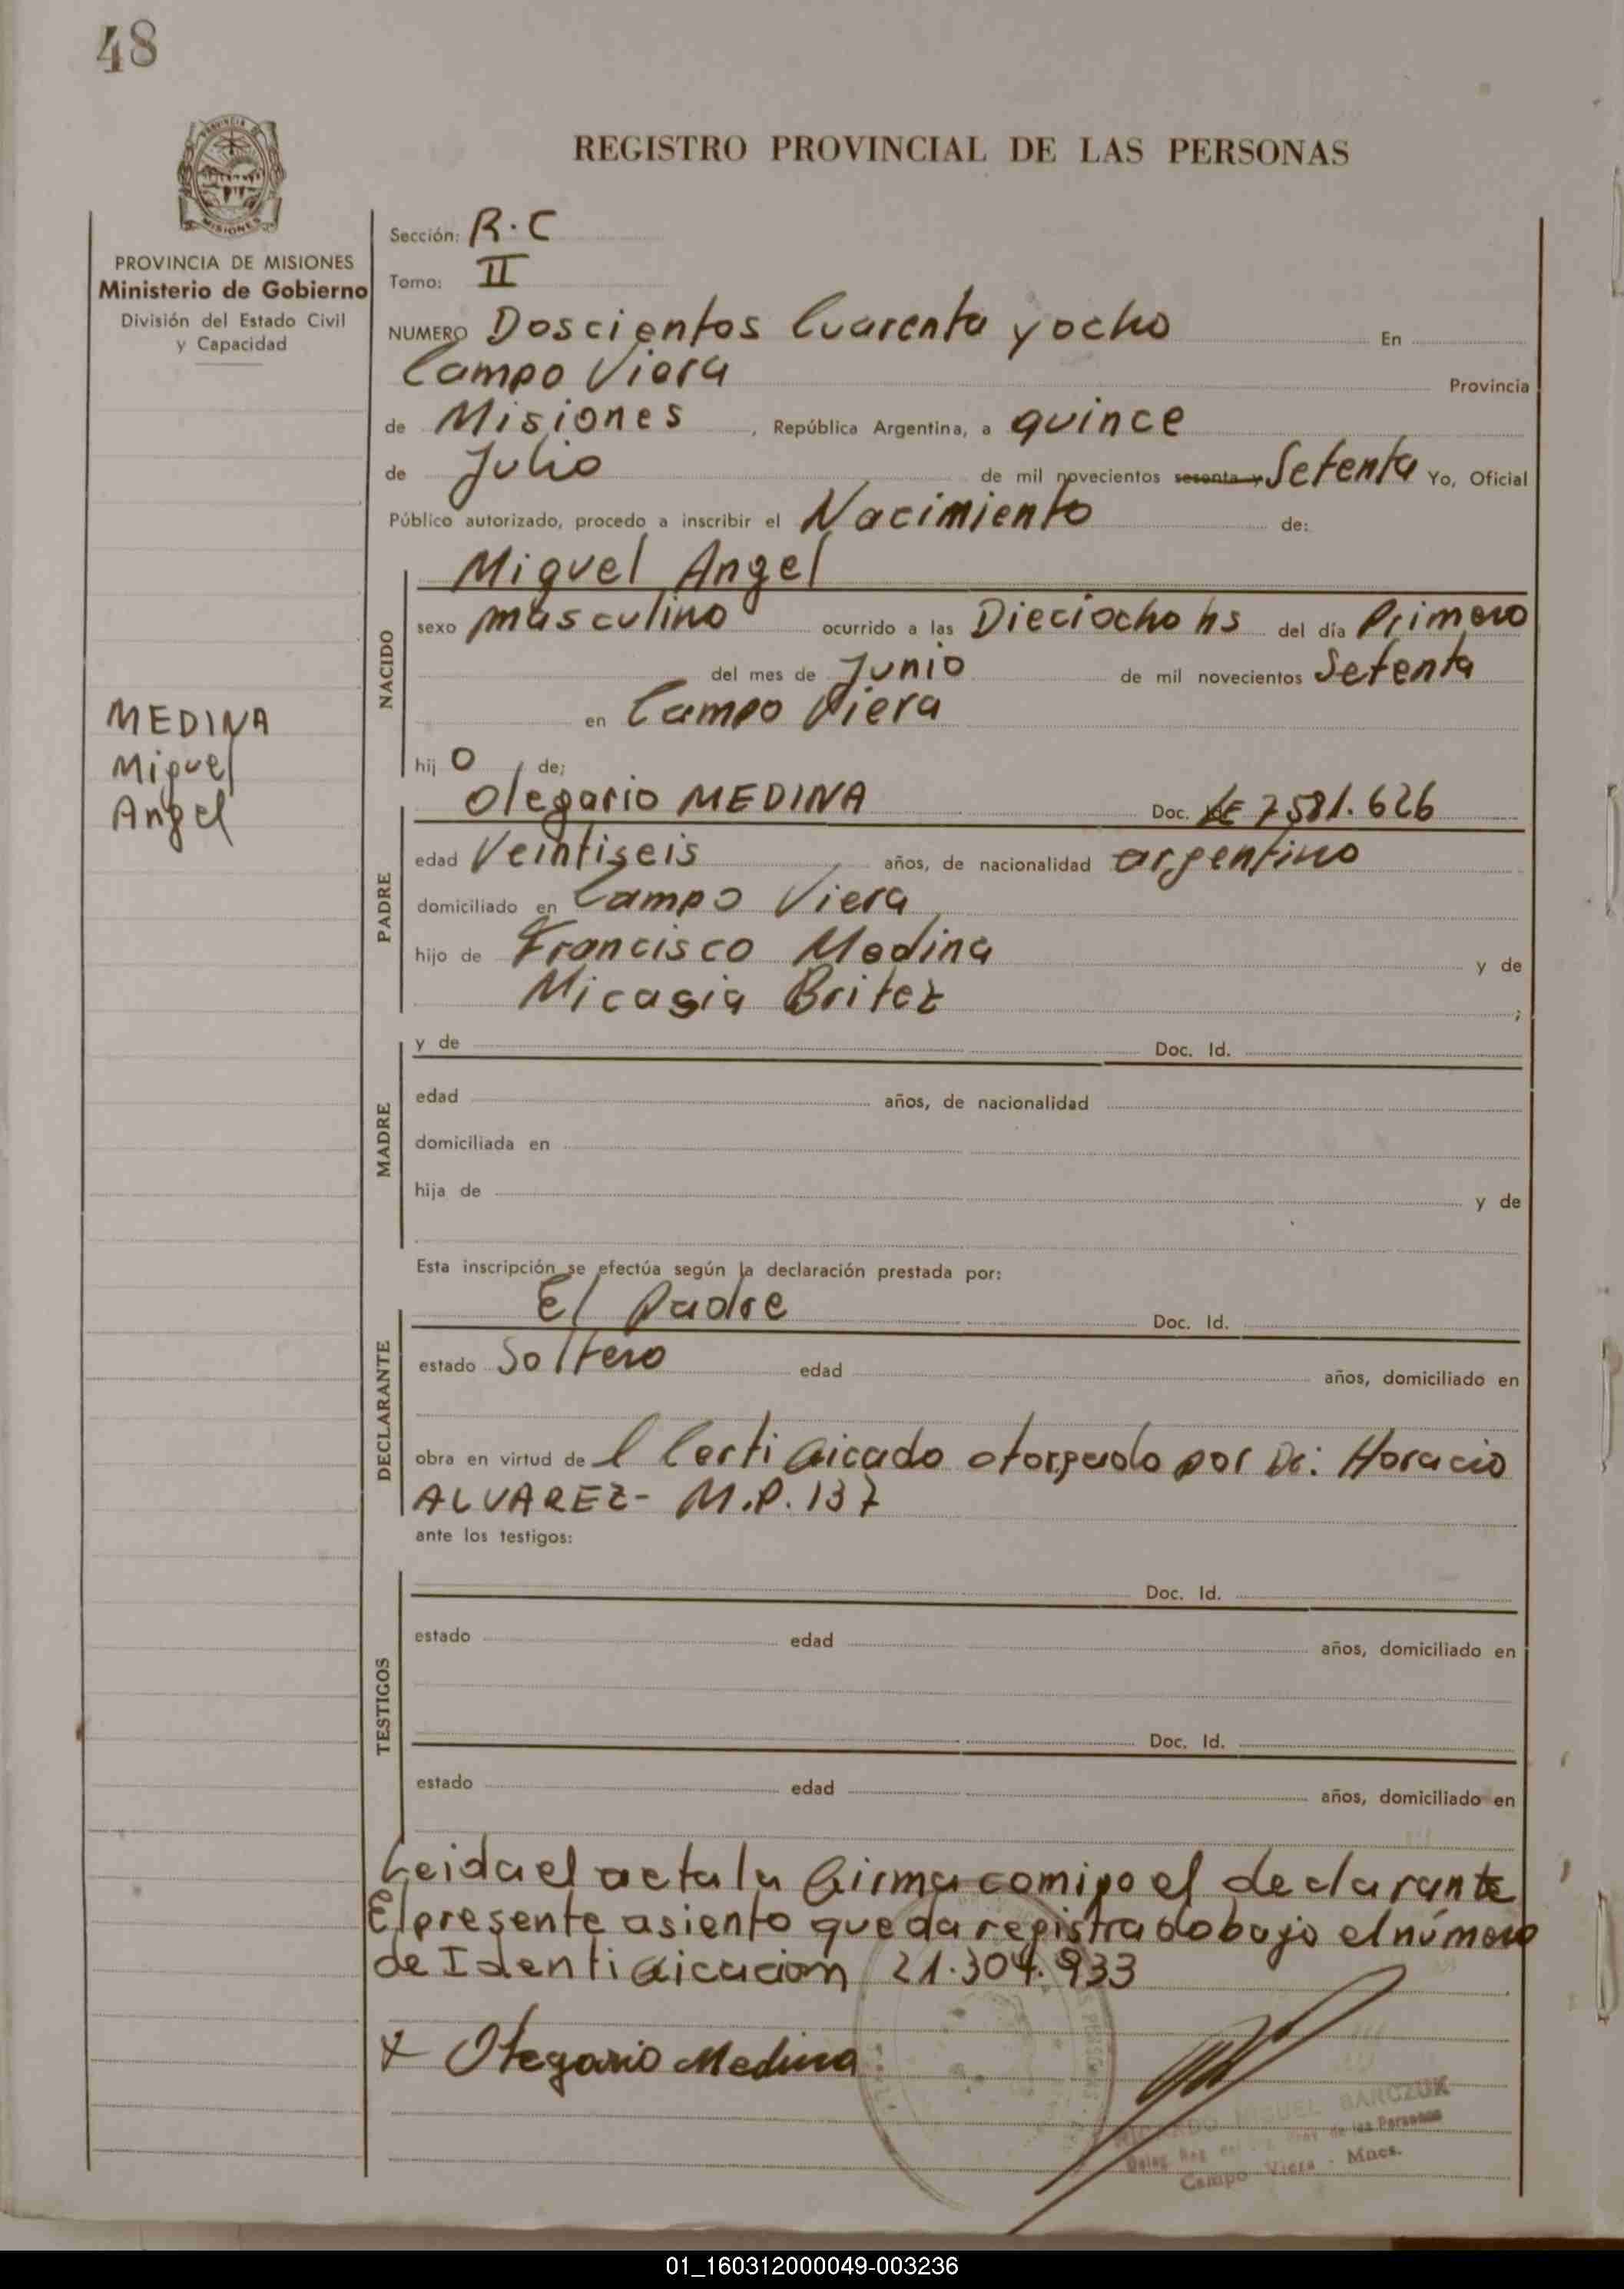 48
PROVINCIA DE
MISIONES
REGISTRO PROVINCIAL DE LAS PERSONAS
PROVINCIA DE MISIONES
Ministerio de Gobierno
División del Estado Civil
y Capacidad
Sección: R.C
Tomo: II
NUMERO Doscientos Cuarenta y ocho En
Campo Viera Provincia
de Misiones, República Argentina, a quince
de Julio de mil novecientos sesenta y Setenta Yo, Oficial
Público autorizado, procedo a inscribir el Nacimiento de:
NACIDO
Miguel Angel
sexo masculino ocurrido a las Dieciocho hs del día Primero
del mes de Junio de mil novecientos Setenta
en Campo Viera
hij o de;
MEDINA
Miguel
Angel
PADRE
Olegario MEDINA Doc. LE 7581.626
edad Veintiseis años, de nacionalidad argentino
domiciliado en Campo Viera
hijo de Francisco Medina y de
Micasia Britez ;
MADRE
y de Doc. Id.
edad años, de nacionalidad
domiciliada en
hija de y de
Esta inscripción se efectúa según la declaración prestada por:
DECLARANTE
El Padre Doc. Id.
estado Soltero edad años, domiciliado en
obra en virtud de l Certificado otorgado por Dr: Horacio
ALVAREZ- M.P. 137
ante los testigos:
TESTIGOS
Doc. Id.
estado edad años, domiciliado en
Doc. Id.
estado edad años, domiciliado en
Leida el acta la firma comigo el declarante
El presente asiento queda registrado bajo el número
de Identificacion 21.304.933
x Olegario Medina
RICARDO MIGUEL BARCZUK
Deleg. Reg. Prov. de las Personas
Campo Viera - Mnes.
01_160312000049-003236